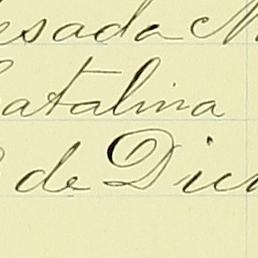 esada M
Catalina
de Dic